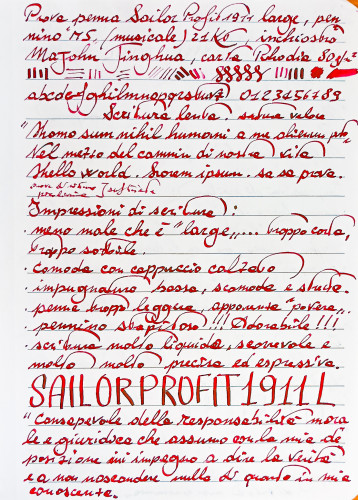 Prova penna Sailor Profit 1911 large, pen
nino MS (musicale) 21Kt inchiostro
Majohn Jinghua, carta Rhodia 80g/m²
abcdefghilmnopqrstuvz 0123456789
Scrittura lenta. scrittura veloce
"Homo sum nihil humani a me alienum puto
Nel mezzo del cammin di nostra vita
Hello world. Lorem ipsum. sa sa prova.
Impressioni di scrittura:
· meno male che è "large"... troppo corta,
troppo sottile.
· comoda con cappuccio calzato
· impugnatura bassa, scomoda e stretta.
· penna troppo leggera, apparenza "povera"
· pennino strepitoso!!! Adorabile!!!
· scrittura molto liquida, scorrevole e
molto molto precisa ed espressiva.
SAILOR PROFIT 1911 L
"Consapevole della responsabilità mora
le e giuridica che assumo con la mia de
posizione mi impegno a dire la verità
e a non nascondere nulla di quanto in mia
conoscenza.